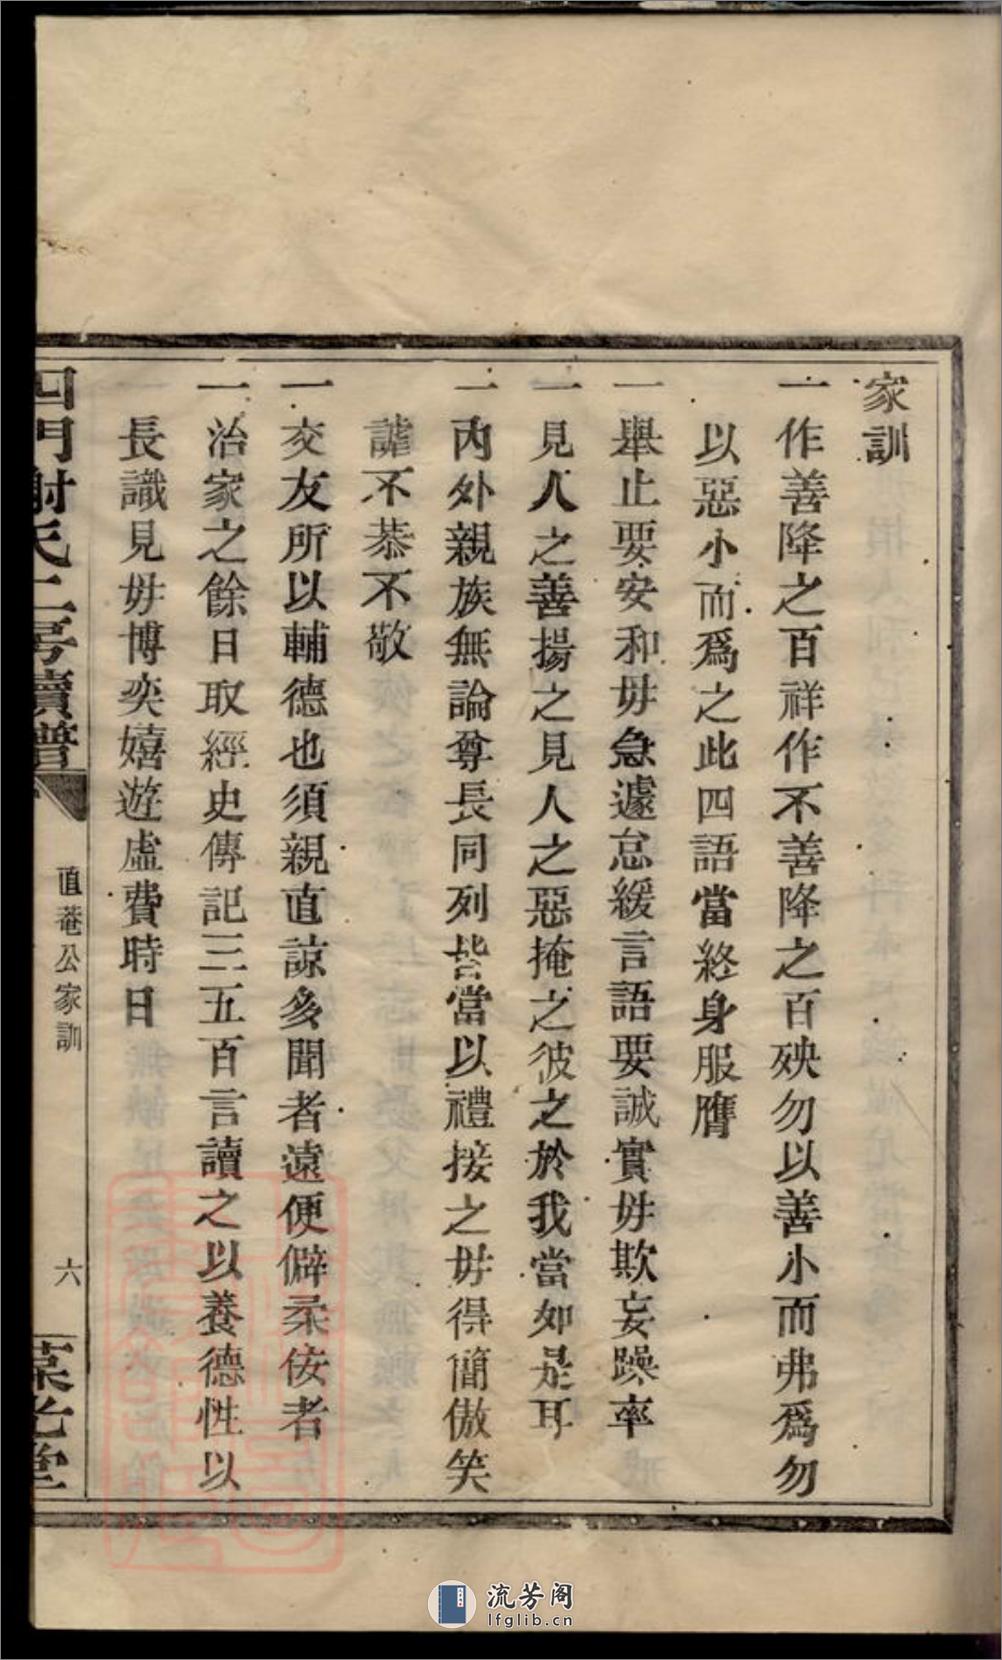 家訓
一作善降之百祥作不善降之百殃勿以善小而弗爲勿
以惡小而爲之此四語當終身服膺
一舉止要安和毋急遽怠緩言語要誠實毋欺妄躁率
一見人之善揚之見人之惡掩之彼之於我當如是耳
一內外親族無論尊長同列皆當以禮接之毋得簡傲笑
謔不恭不敬
一交友所以輔德也須親直諒多聞者遠便僻柔佞者
一治家之餘日取經史傳記三五百言讀之以養德性以
長識見毋博奕嬉遊虛費時日
四門謝氏二房續譜
直菴公家訓
六
堂
流芳阁
lfglib.cn